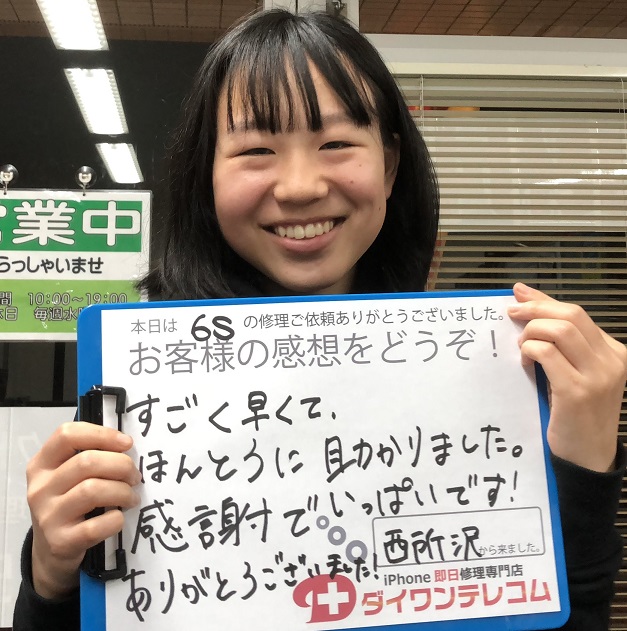 営業中
らっしゃいませ
間 10:00～19:00
日 毎週水
本日は 6S の修理ご依頼ありがとうございました。
お客様の感想をどうぞ！
すごく早くて、
ほんとうに助かりました。
感謝でいっぱいです！
ありがとうございました！
西所沢から来ました。
iPhone 即日修理専門店
ダイワンテレコム